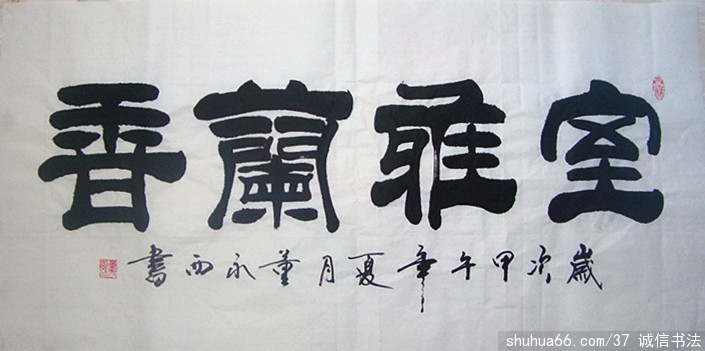 室雅蘭香
歲次甲午年夏月董永西書
shuhua66.com/37 诚信书法